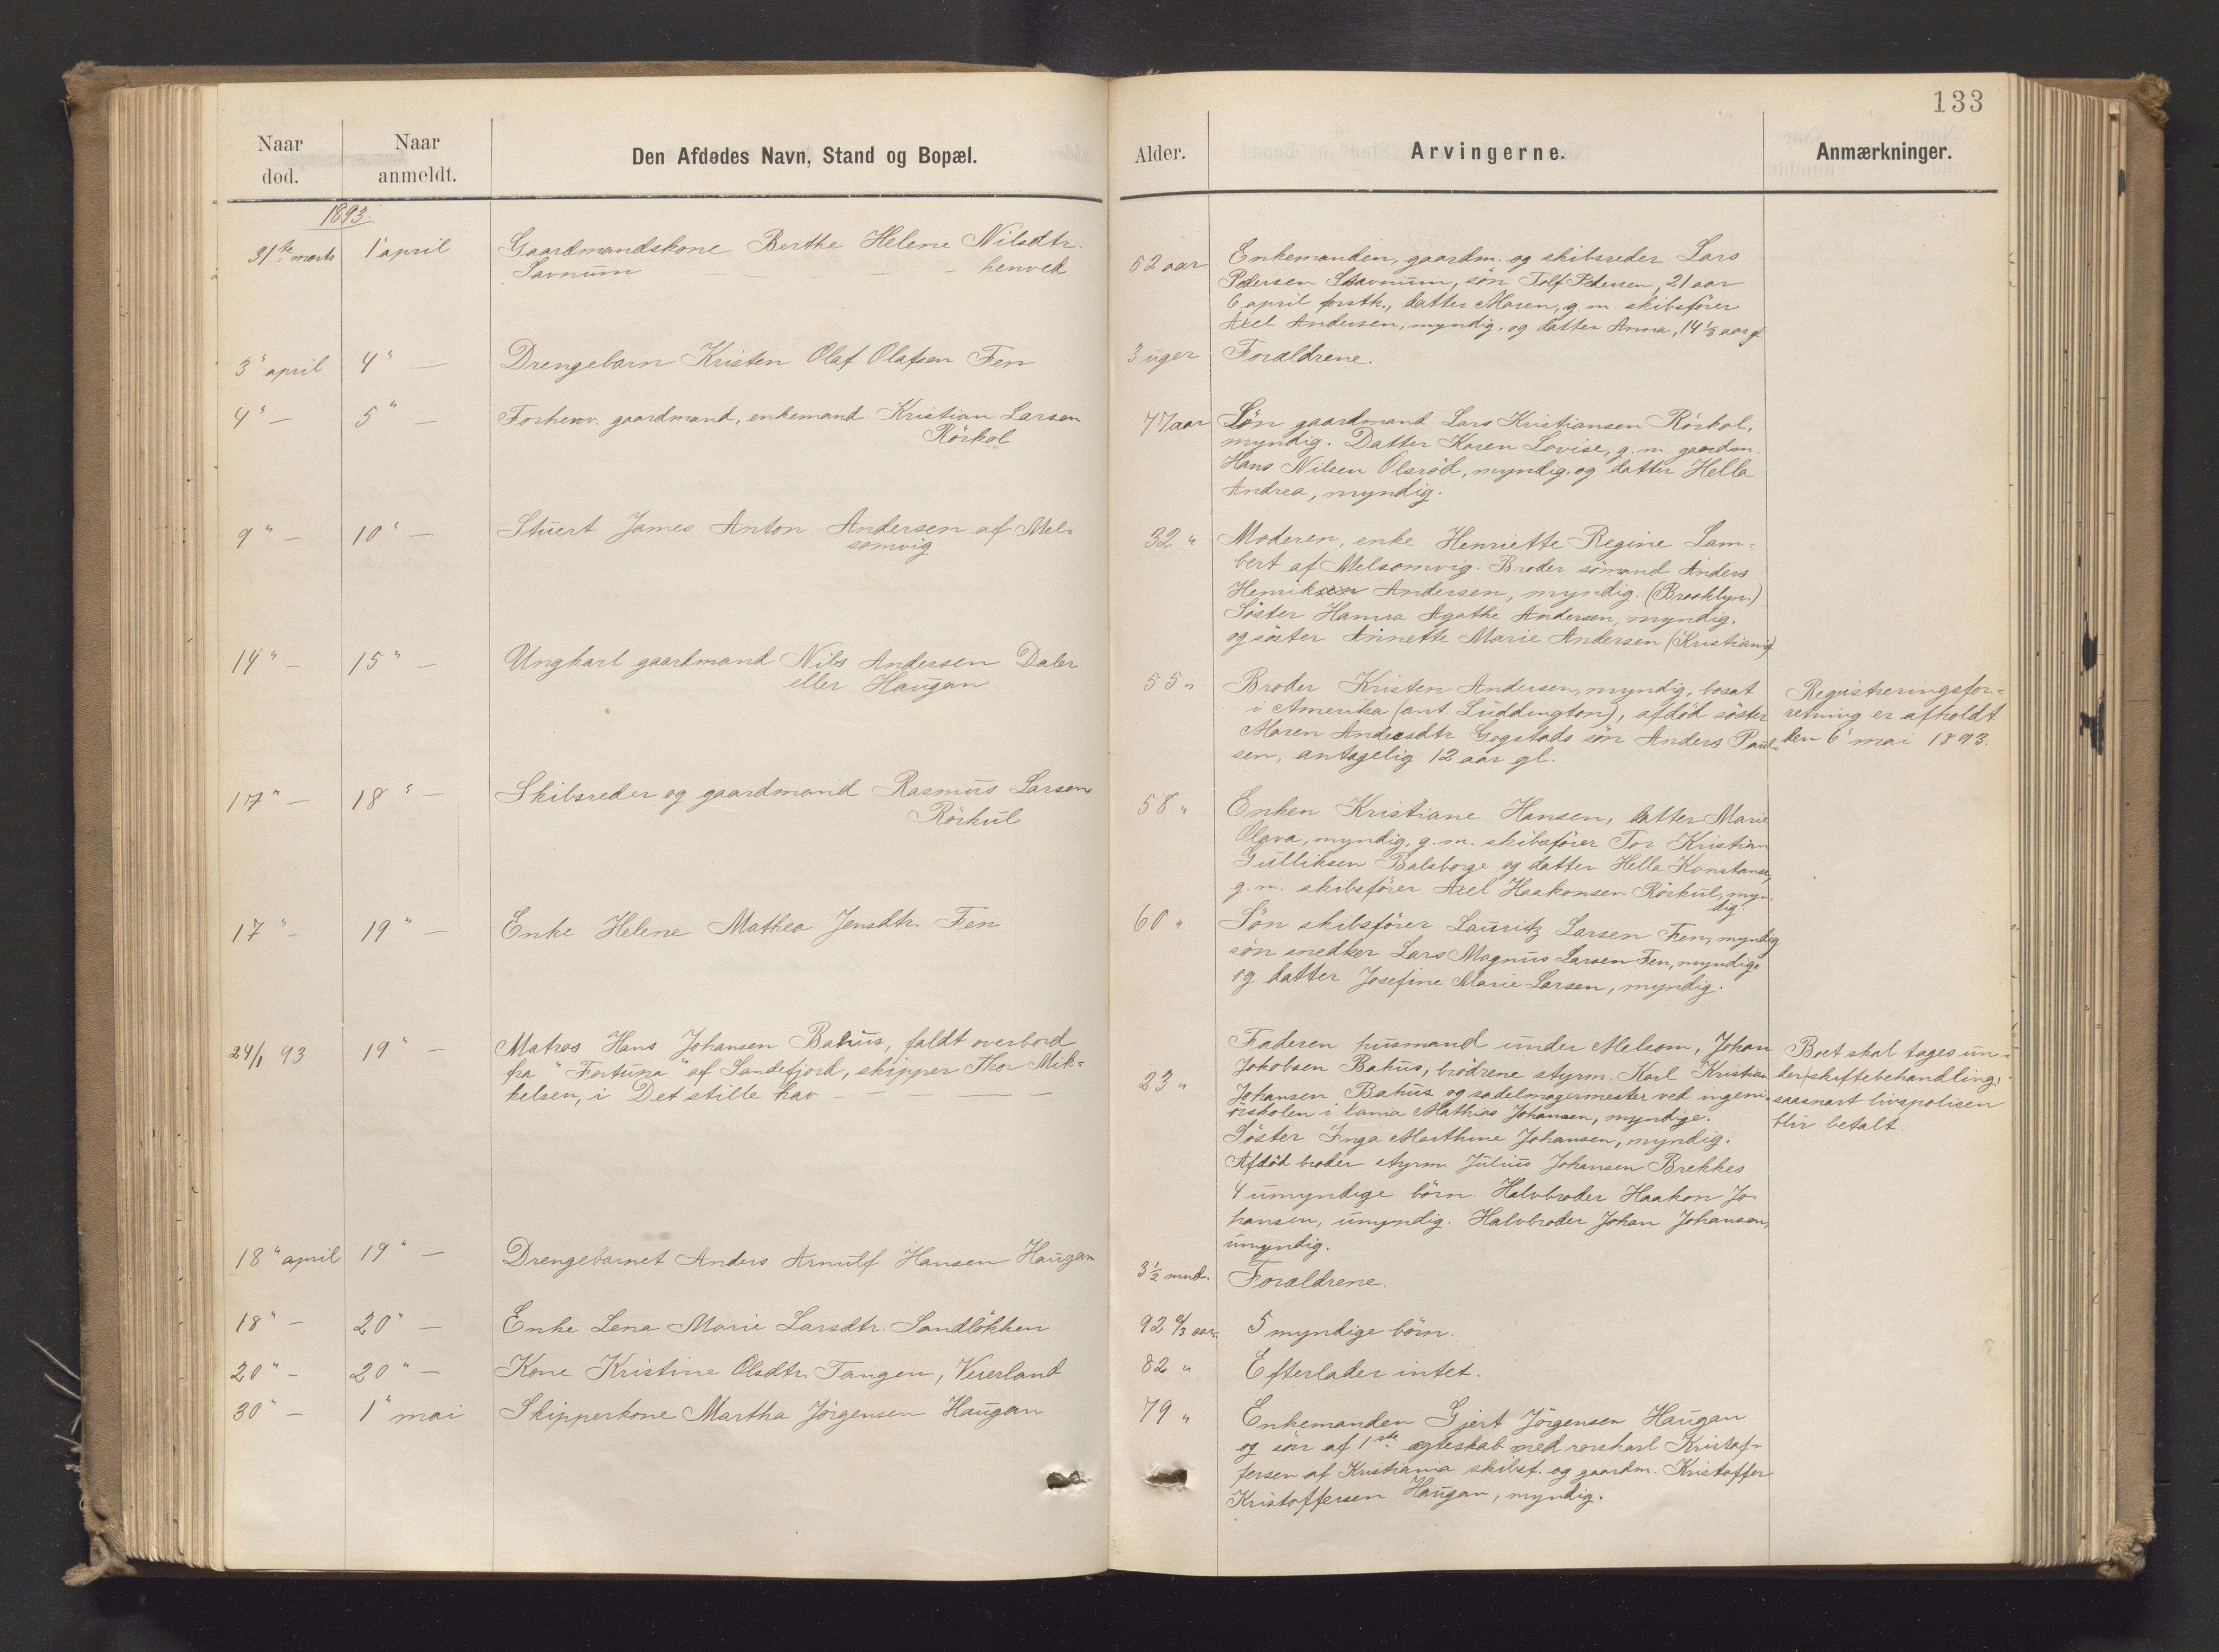 133
Naar død.
Naar anmeldt.
Den Afdødes Navn, Stand og Bopæl.
Alder.
Arvingerne.
Anmærkninger.
1893.
31te marts 1' april Gaardmandskone Berthe Helene Nilsdtr.
Savnum — — — — henved
52 aar Enkemanden, gaardm. og skibsreder Lars
Pedersen Stavnum, søn Tolf Pedersen, 21 aar
6 april førstk., datter Maren, g. m. skibsfører
Axel Andersen, myndig, og datter Anna, 14 1/3 aar gl
3" april 4" — Drengebarn Kristen Olaf Olafsen Fen
3 uger Forældrene.
4" — 5" — Forhenv. gaardmand, enkemand Kristian Larsen
Rörkol
77 aar Søn gaardmand Lars Kristiansen Rörkol,
myndig. Datter Karen Lovise, g. m. gaardm.
Hans Nilsen Olsröd, myndig, og datter Hella
Andrea, myndig.
9" — 10" — Stuert James Anton Andersen af Mel-
somvig
32 " Moderen, enke Henriette Regine Lam-
bert af Melsomvig. Broder sömand Anders
Henriksen Andersen, myndig. (Brooklyn.)
Söster Hanna Agathe Andersen, myndig,
og söster Annette Marie Andersen (Kristiania)
14" — 15" — Ungkarl gaardmand Nils Andersen Daler
eller Haugan
55 " Broder Kristen Andersen, myndig, bosat
i Amerika (ant. Luddington), afdöd söster
Maren Andersdtr Gogstads sön Anders Paul-
sen, antagelig 12 aar gl.
Registreringsfor-
retning er afholdt
den 6' mai 1893.
17" — 18" — Skibsreder og gaardmand Rasmus Larsen
Rörkul
58 " Enken Kristiane Hansen, datter Marie
Olava, myndig, g. m. skibsförer Tor Kristian
Gulliksen Basberge og datter Hella Konstanse,
g. m. skibsförer Axel Haakonsen Rörkul, myn-
dig.
17" — 19" — Enke Helene Mathea Jensdtr. Fen
60 " Sön skibsförer Lauritz Larsen Fen, myndig
sön snedker Lars Magnus Larsen Fen, myndig,
og datter Josefine Marie Larsen, myndig.
24/1 93 19" — Matros Hans Johansen Bahus, faldt overbord
fra "Fortuna" af Sandefjord, skipper Thor Mik-
kelsen, i Det stille hav — — — — —
23 " Faderen husmand under Melsom, Johan
Jakobsen Bahus, brödrene styrm. Karl Kristian
Johansen Bahus og sadelmagermester ved ingeni-
örskolen i Xania Mathias Johansen, myndige.
Söster Inga Marthine Johansen, myndig.
Afdöd broder styrm. Julius Johansen Brekkes
4 umyndige börn. Halvbroder Haakon Jo-
hansen, umyndig. Halvbroder Johan Johansen,
umyndig.
Boet skal tages un-
der skiftebehandling,
saasnart livspolisen
blir betalt.
18" april 19" — Drengebarnet Anders Arnulf Hansen Haugan
3 1/2 mnd. Forældrene.
18" — 20" — Enke Lena Marie Larsdtr. Sandlökken
aar. 5 myndige börn.
20" — 20" — Kone Kristine Olsdtr. Tangen, Veierland
82 " Efterlader intet.
30" — 1" mai Skipperkone Martha Jörgensen Haugan
79 " Enkemanden Gjert Jörgensen Haugan
og sön af 1ste egteskab med Kristof-
fersen af Kristiania skibsf. og gaardm. Kristoffer
Kristoffersen Haugan, myndig.